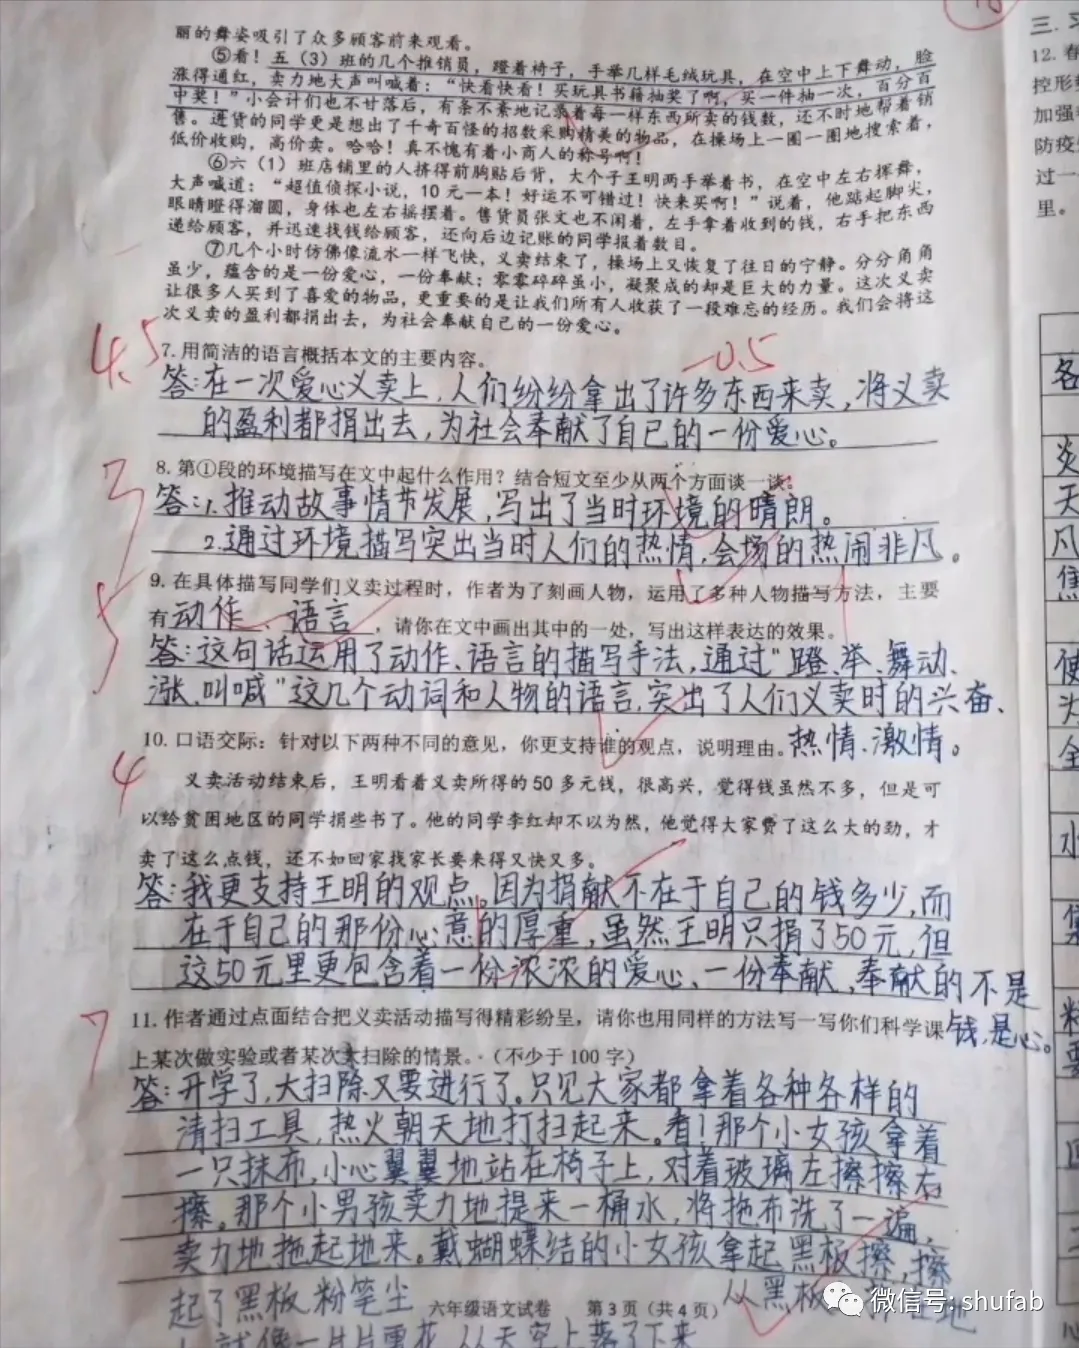 丽的舞姿吸引了众多顾客前来观看。
⑤看！五（3）班的几个推销员，蹬着椅子，手举几样毛绒玩具，在空中上下舞动，脸
涨得通红，卖力地大声叫喊着：“快看快看！买玩具书籍抽奖了啊，买一件抽一次，百分百
中奖！”小会计们也不甘落后，有条不紊地记录着每一样东西所卖的钱数，还不时地帮着销
售。进货的同学更是想出了千奇百怪的招数采购精美的物品，在操场上一圈一圈地搜索着，
低价收购，高价卖。哈哈！真不愧有着小商人的称号啊！
⑥六（1）班店铺里的人挤得前胸贴后背，大个子王明两手举着书，在空中左右挥舞，
大声喊道：“超值侦探小说，10元一本！好运不可错过！快来买啊！”说着，他踮起脚尖，
眼睛瞪得溜圆，身体也左右摇摆着。售货员张文也不闲着，左手拿着收到的钱，右手把东西
递给顾客，并迅速找钱给顾客，还向后边记账的同学报着数目。
⑦几个小时仿佛像流水一样飞快，义卖结束了，操场上又恢复了往日的宁静。分分角角
虽少，蕴含的是一份爱心，一份奉献；零零碎碎虽小，凝聚成的却是巨大的力量。这次义卖
让很多人买到了喜爱的物品，更重要的是让我们所有人收获了一段难忘的经历。我们会将这
次义卖的盈利都捐出去，为社会奉献自己的一份爱心。
4.5
7. 用简洁的语言概括本文的主要内容。
-0.5
答:在一次爱心义卖上,人们纷纷拿出了许多东西来卖,将义卖
的盈利都捐出去,为社会奉献了自己的一份爱心。
3
8. 第①段的环境描写在文中起什么作用？结合短文至少从两个方面谈一谈。
答:1.推动故事情节发展,写出了当时环境的晴朗。
2.通过环境描写突出当时人们的热情,会场的热闹非凡。
5
9. 在具体描写同学们义卖过程时，作者为了刻画人物，运用了多种人物描写方法，主要
有动作、语言，请你在文中画出其中的一处，写出这样表达的效果。
答:这句话运用了动作、语言的描写手法,通过“蹬、举、舞动、
涨、叫喊”这几个动词和人物的语言,突出了人们义卖时的兴奋、
热情、激情。
4
10. 口语交际：针对以下两种不同的意见，你更支持谁的观点，说明理由。
义卖活动结束后，王明看着义卖所得的50多元钱，很高兴，觉得钱虽然不多，但是可
以给贫困地区的同学捐些书了。他的同学李红却不以为然，他觉得大家费了这么大的劲，才
卖了这么点钱，还不如回家找家长要来得又快又多。
答:我更支持王明的观点。因为捐献不在于自己的钱多少,而
在于自己的那份心意的厚重,虽然王明只捐了50元,但
这50元里更包含着一份浓浓的爱心、一份奉献,奉献的不是
钱,是心。
7
11. 作者通过点面结合把义卖活动描写得精彩纷呈，请你也用同样的方法写一写你们科学课
上某次做实验或者某次大扫除的情景。（不少于100字）
答:开学了,大扫除又要进行了。只见大家都拿着各种各样的
清扫工具,热火朝天地打扫起来。看!那个小女孩拿着
一只抹布,小心翼翼地站在椅子上,对着玻璃左擦擦右
擦。那个小男孩卖力地提来一桶水,将拖布洗了一遍,
卖力地拖起地来。戴蝴蝶结的小女孩拿起黑板擦,擦
起了黑板 粉笔尘
从黑板
地
六年级语文试卷 第3页（共4页）
就像一片片雪花 从天空上落了下来
三.
12. 春
控形
加强
防疫
过一
里。
各
炎
天
凡
焦
使
为
全
水
集
料
要
微信号: shufab